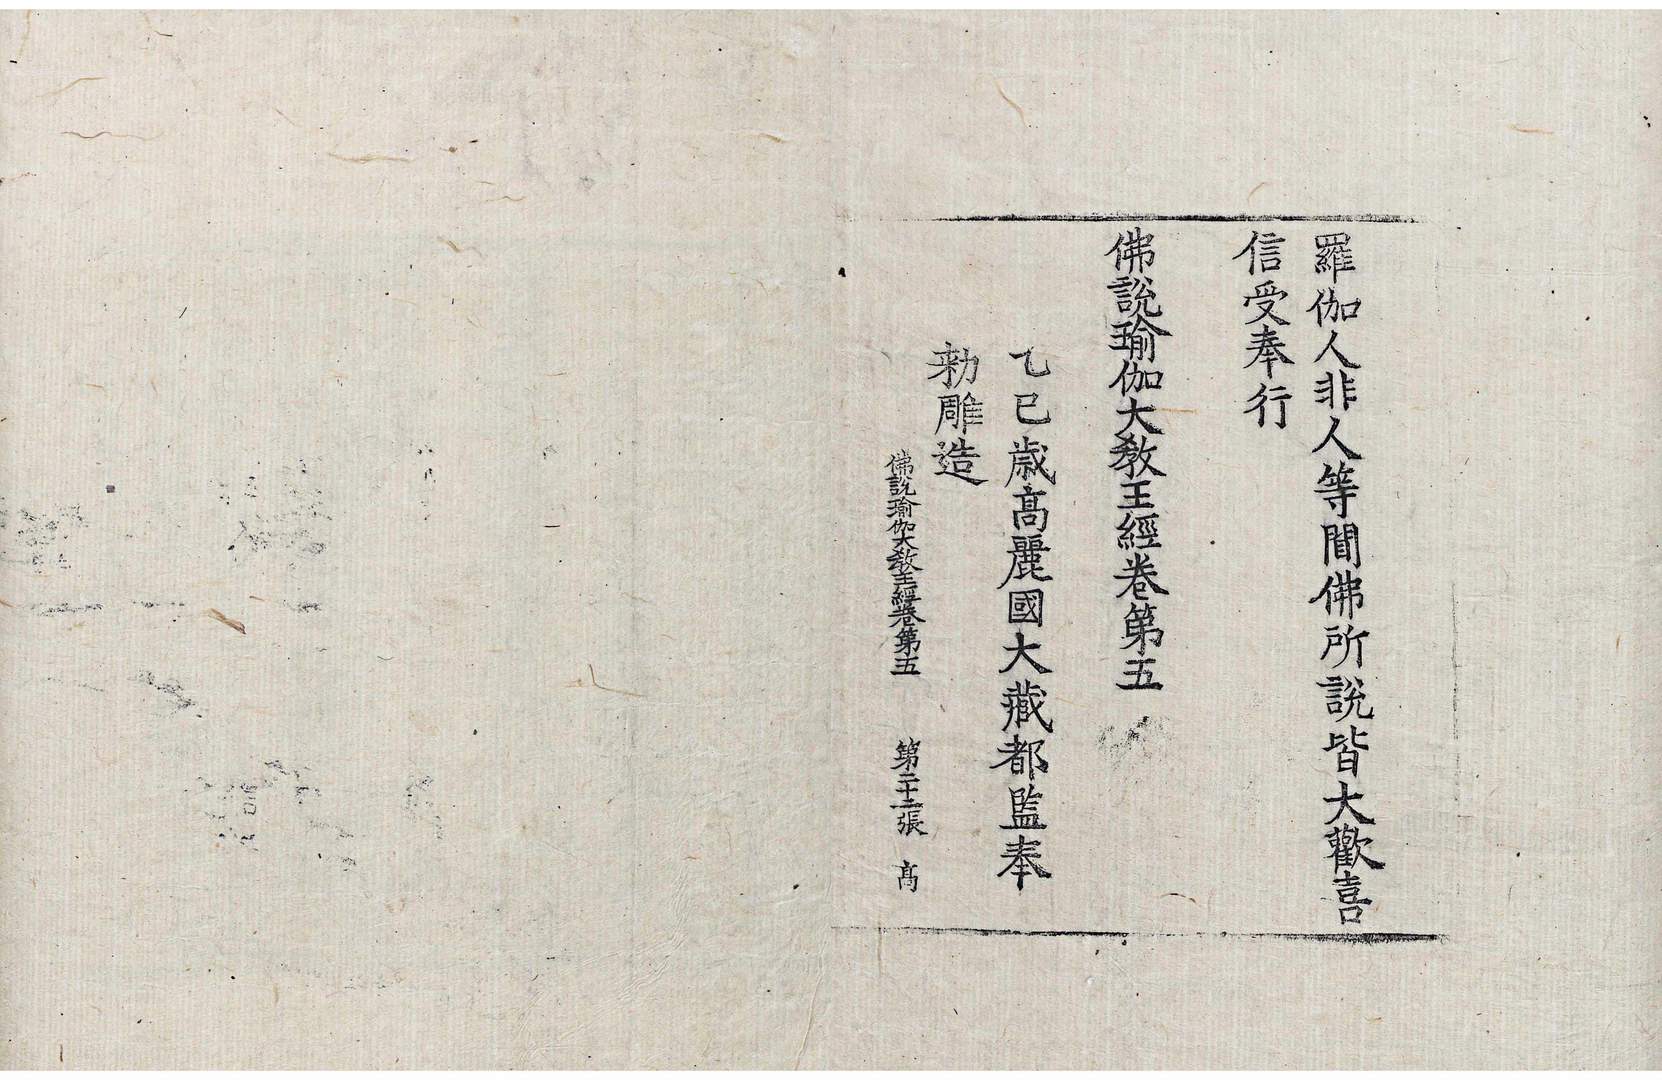 羅伽人非人等聞佛所說皆大歡喜
信受奉行
佛說瑜伽大敎王經卷第五
乙巳歳髙麗國大藏都監奉
勑雕造
佛說瑜伽大敎王經卷第五 第二十二張 髙